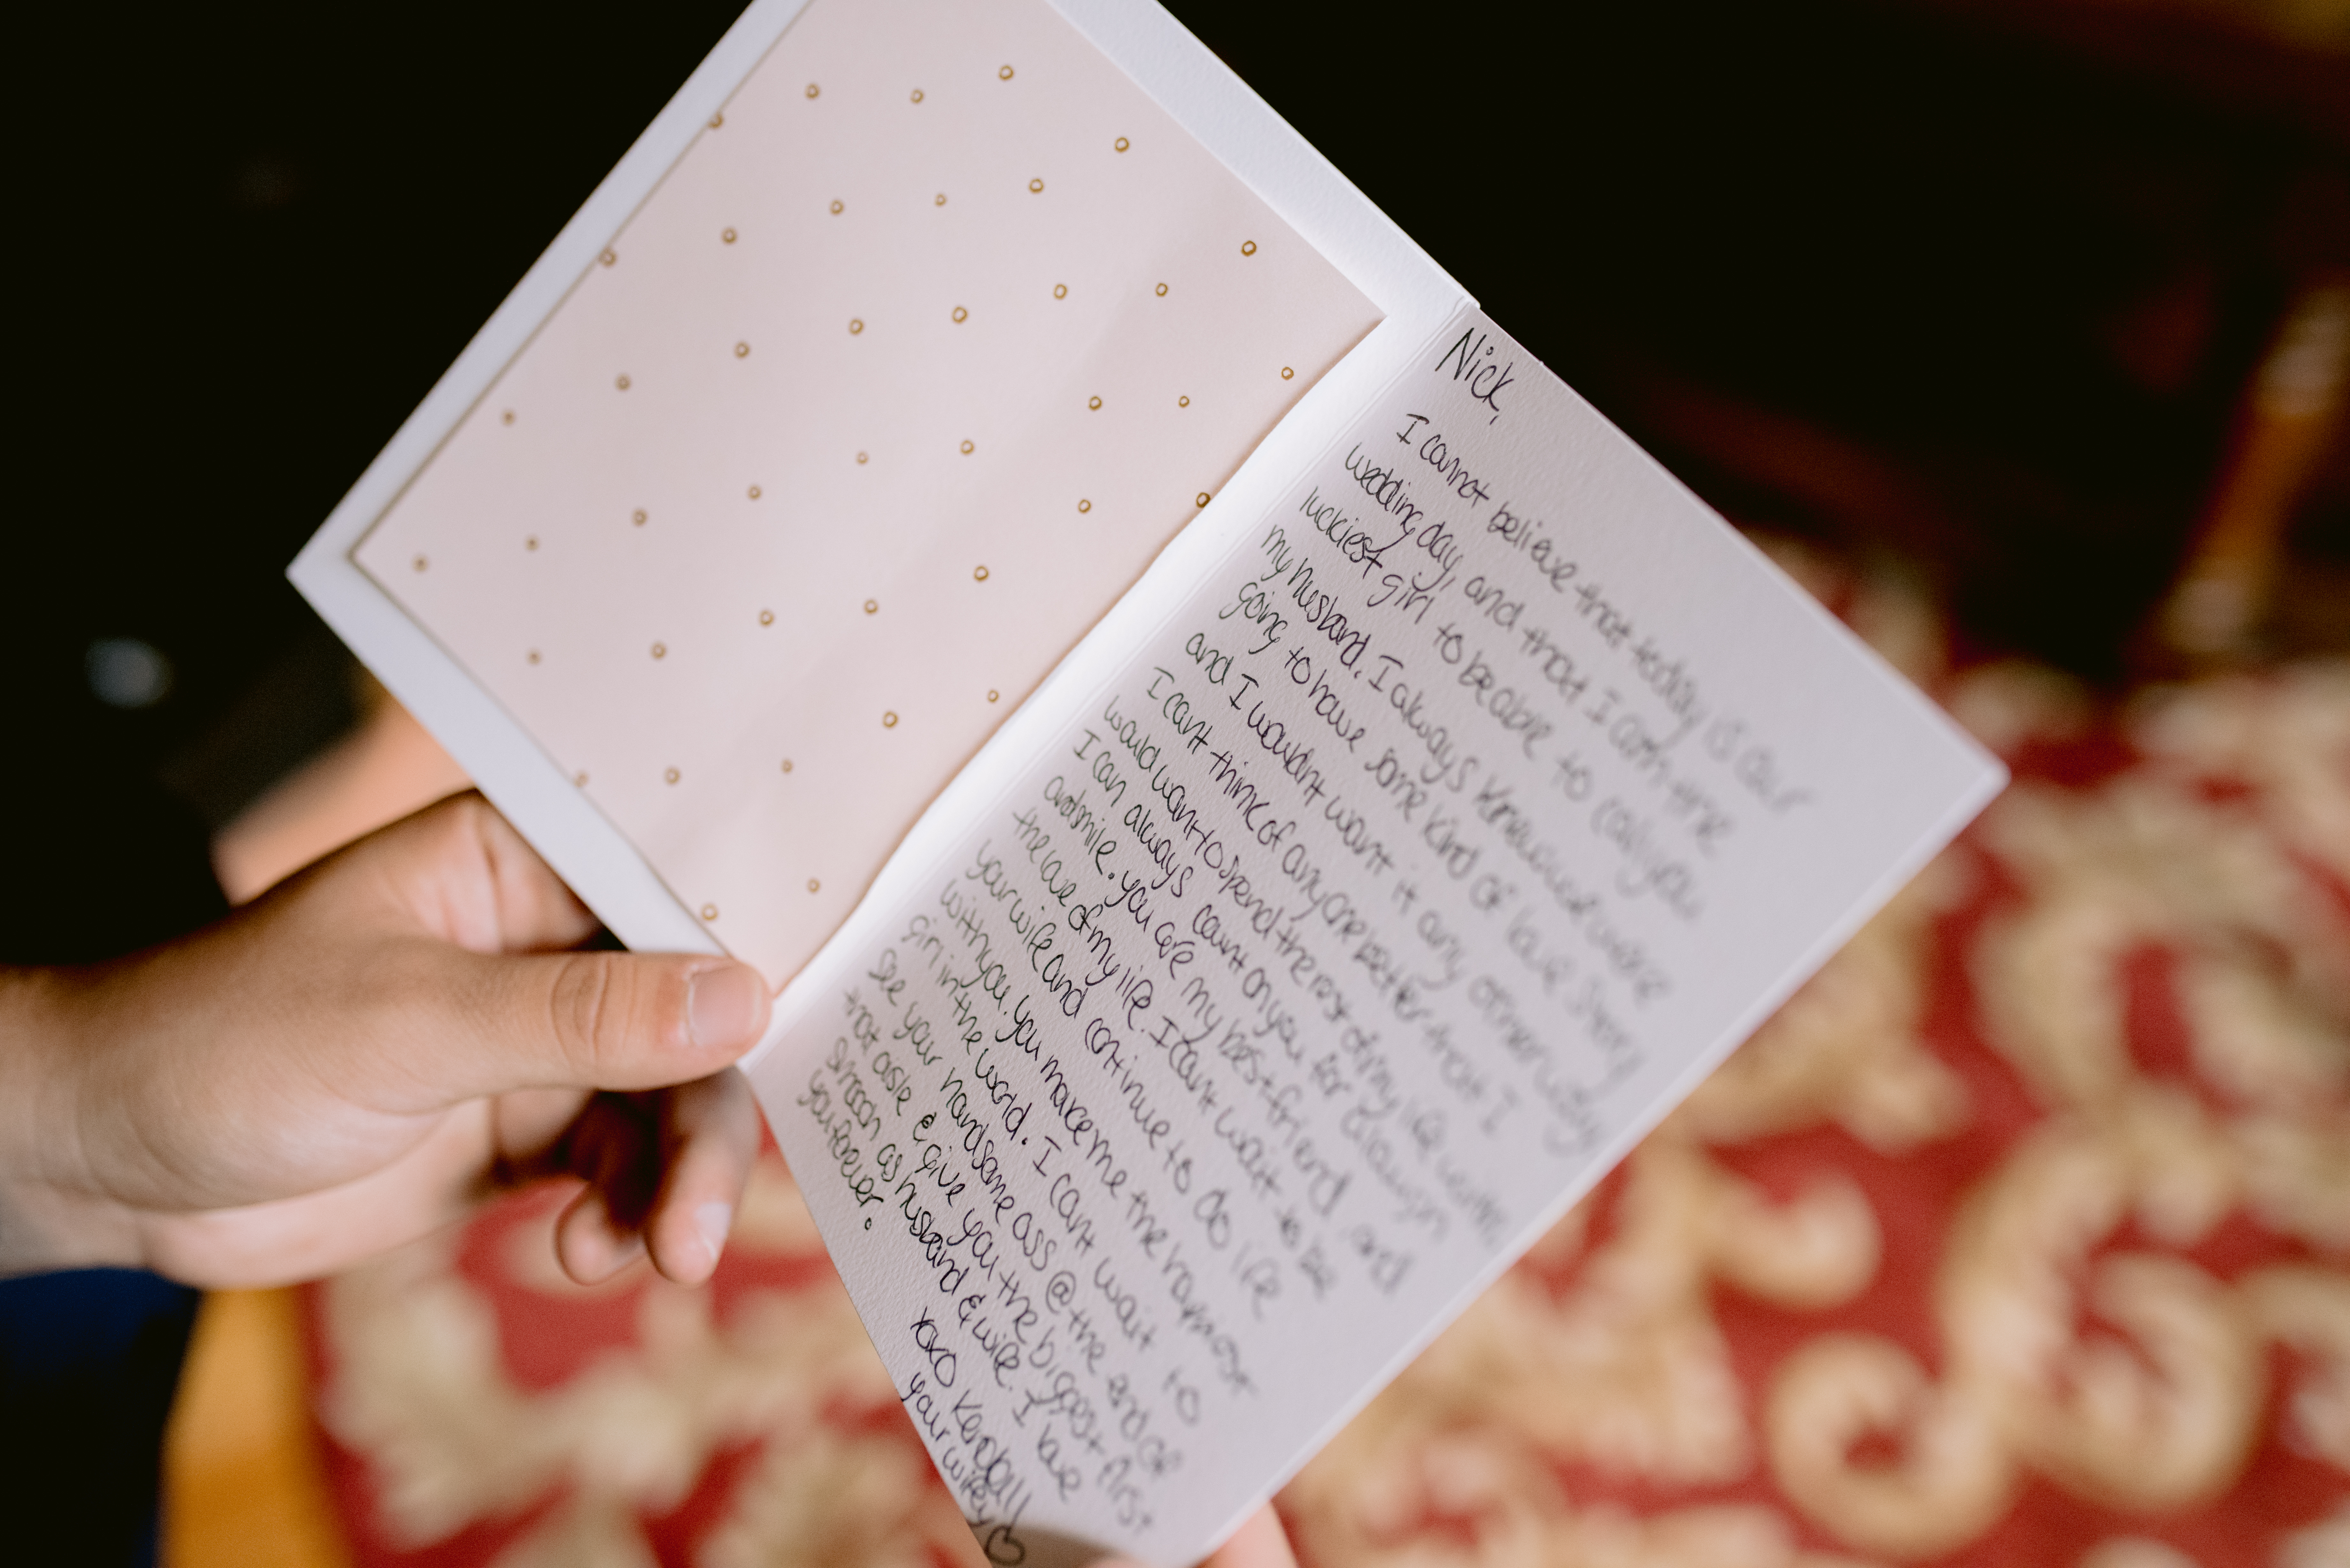 Nick,
I cannot believe that today is our
wedding day, and that I am the
luckiest girl to be able to call you
my husband. I always knew we were
going to have some kind of love story
and I wouldnt want it any other way
I cant think of anyone better that I
would want to spend the rest of my life with.
I can always count on you for a laugh
and smile. you are my best friend and
the love of my life. I cant wait to be
your wife and continue to do life
with you. you make me the happiest
girl in the world. I cant wait to
see your handsome ass @ the end of
that aisle & give you the biggest first
smooch as husband & wife. I love
you forever.
xoxo Kendall
your wifey♡